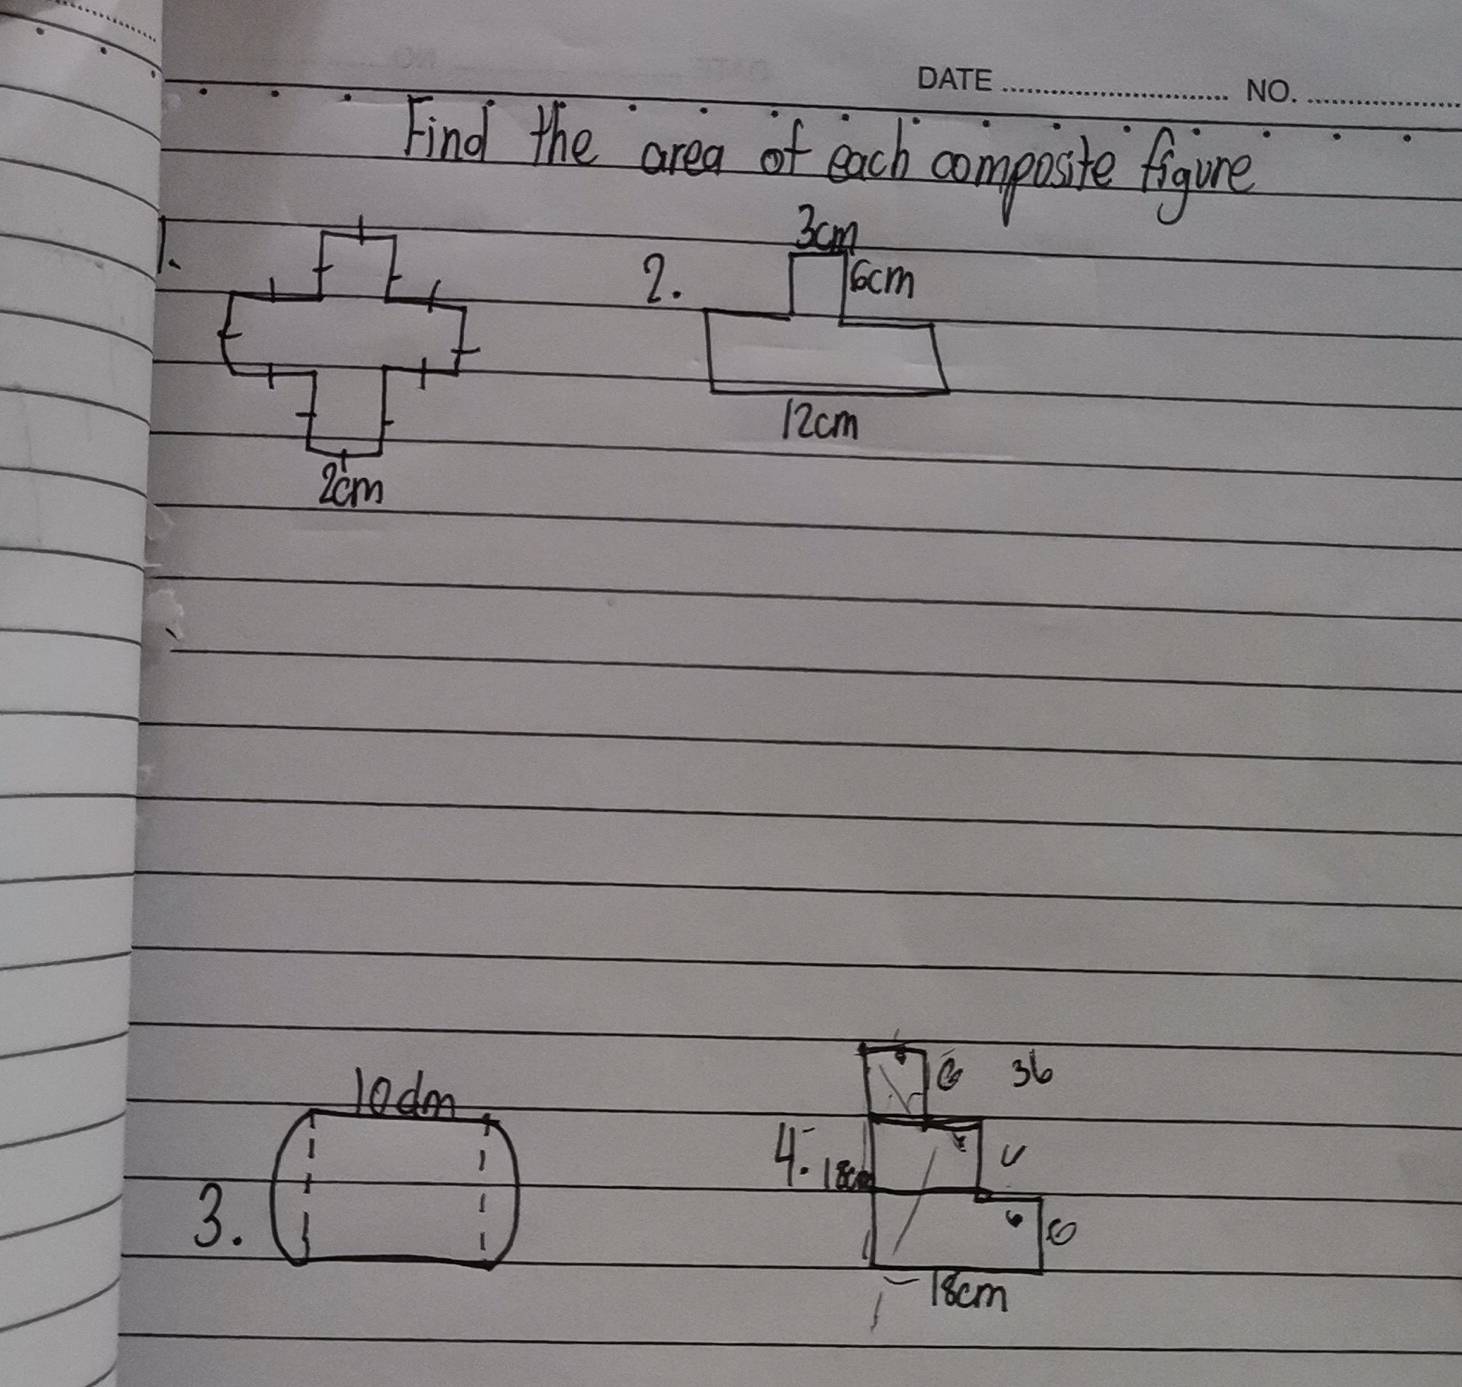 DATE NO.
Find the area of each composite figure
1.
2.
3cm
6cm
2cm
12cm
3.
10dm
4.
6 36
18cm
6
18cm